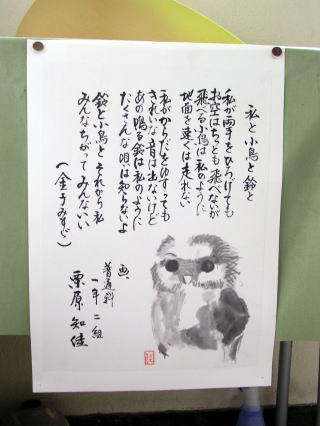 私と小鳥と鈴と
私が両手をひろげても
お空はちっとも飛べないが
飛べる小鳥は私のように
地面を速くは走れない
私がからだをゆすっても
きれいな音は出ないけど
あの鳴る鈴は私のように
たくさんな唄は知らないよ
鈴と小鳥とそれから私
みんなちがってみんないい
(金子みすゞ)
画、
普通科
一年二組
栗原知佳